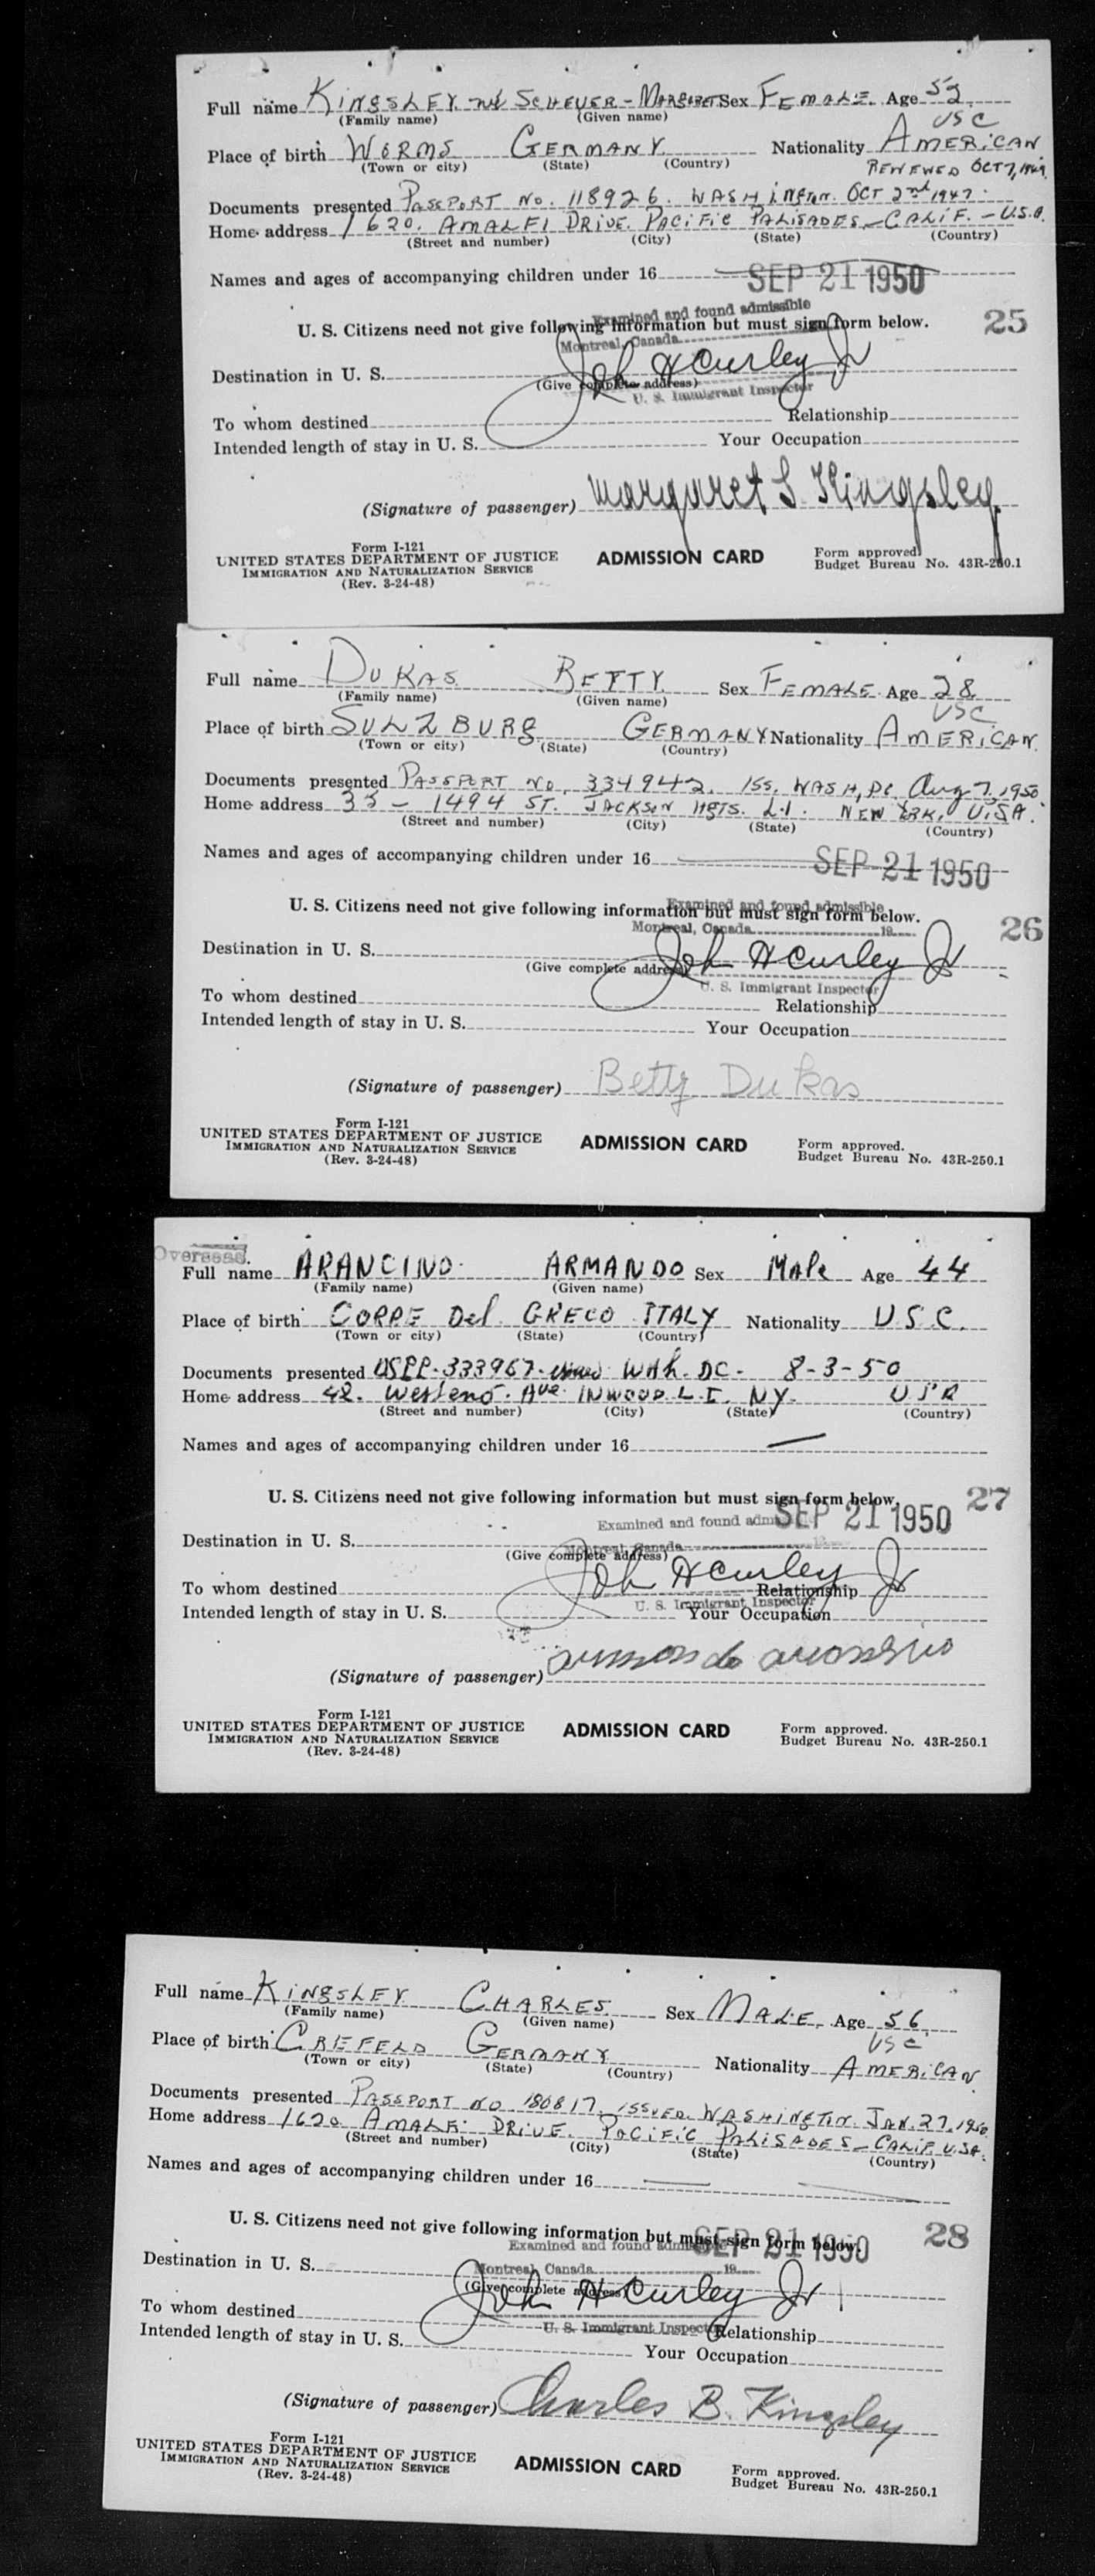 Full name KINGSLEY née SCHEUER - MARGARET Sex FEMALE. Age 52
(Family name) (Given name)
USC
Place of birth WORMS GERMANY Nationality AMERICAN
(Town or city) (State) (Country)
RENEWED OCT 7, 1949
Documents presented PASSPORT No. 118926. WASHINGTN. OCT 2nd 1947.
Home address 1620. AMALFI DRIVE. PACIFIC PALISADES - CALIF. - U.S.A.
(Street and number) (City) (State) (Country)
Names and ages of accompanying children under 16
SEP 21 1950
Examined and found admissible
U. S. Citizens need not give following information but must sign form below. 25
Montreal, Canada
John H Curley Jr
Destination in U. S.
(Give complete address)
U. S. Immigrant Inspector
To whom destined Relationship
Intended length of stay in U. S. Your Occupation
(Signature of passenger) Margaret S. Kingsley
Form I-121
UNITED STATES DEPARTMENT OF JUSTICE
IMMIGRATION AND NATURALIZATION SERVICE
(Rev. 3-24-48)
ADMISSION CARD
Form approved.
Budget Bureau No. 43R-250.1
Full name DUKAS BETTY Sex FEMALE Age 28
(Family name) (Given name)
USC
Place of birth SULZBURG GERMANY Nationality AMERICAN
(Town or city) (State) (Country)
Documents presented PASSPORT No. 334942. ISS. WASH, DC. Aug 7, 1950
Home address 33 - 1494 ST. JACKSON HGTS. L.I. NEW YRK, U.S.A.
(Street and number) (City) (State) (Country)
Names and ages of accompanying children under 16
SEP 21 1950
Examined and found admissible
U. S. Citizens need not give following information but must sign form below.
Montreal, Canada 19 26
John H Curley Jr
Destination in U. S.
(Give complete address)
U. S. Immigrant Inspector
To whom destined Relationship
Intended length of stay in U. S. Your Occupation
(Signature of passenger) Betty Dukas
Form I-121
UNITED STATES DEPARTMENT OF JUSTICE
IMMIGRATION AND NATURALIZATION SERVICE
(Rev. 3-24-48)
ADMISSION CARD
Form approved.
Budget Bureau No. 43R-250.1
Overseas.
Full name ARANCINO ARMANDO Sex Male Age 44
(Family name) (Given name)
Place of birth CORRE Del GRECO ITALY Nationality U.S.C.
(Town or city) (State) (Country)
Documents presented USPP-333967- WAh. DC- 8-3-50
Home address 42. Ave. INWOOD L.I. NY. USA
(Street and number) (City) (State) (Country)
Names and ages of accompanying children under 16
U. S. Citizens need not give following information but must sign form below. 27
Examined and found adm SEP 21 1950
Destination in U. S.
Montreal, Canada
(Give complete address)
John H Curley Jr
To whom destined Relationship
U. S. Immigrant Inspector
Intended length of stay in U. S. Your Occupation
(Signature of passenger) armando
Form I-121
UNITED STATES DEPARTMENT OF JUSTICE
IMMIGRATION AND NATURALIZATION SERVICE
(Rev. 3-24-48)
ADMISSION CARD
Form approved.
Budget Bureau No. 43R-250.1
Full name KINGSLEY CHARLES Sex MALE. Age 56
(Family name) (Given name)
USC
Place of birth CREFELD GERMANY Nationality AMERICAN
(Town or city) (State) (Country)
Documents presented PASSPORT No 180817. ISSUED. WASHINGTN. JAN. 27, 1950
Home address 1620 AMALFI DRIVE. PACIFIC PALISADES - CALIF. U.SA.
(Street and number) (City) (State) (Country)
Names and ages of accompanying children under 16
U. S. Citizens need not give following information but must sign form below. 28
Examined and found admissible SEP 21 1950
Destination in U. S.
Montreal, Canada 19
(Give complete address)
John H Curley Jr
To whom destined Relationship
U. S. Immigrant Inspector
Intended length of stay in U. S. Your Occupation
(Signature of passenger) Charles B. Kingsley
Form I-121
UNITED STATES DEPARTMENT OF JUSTICE
IMMIGRATION AND NATURALIZATION SERVICE
(Rev. 3-24-48)
ADMISSION CARD
Form approved.
Budget Bureau No. 43R-250.1